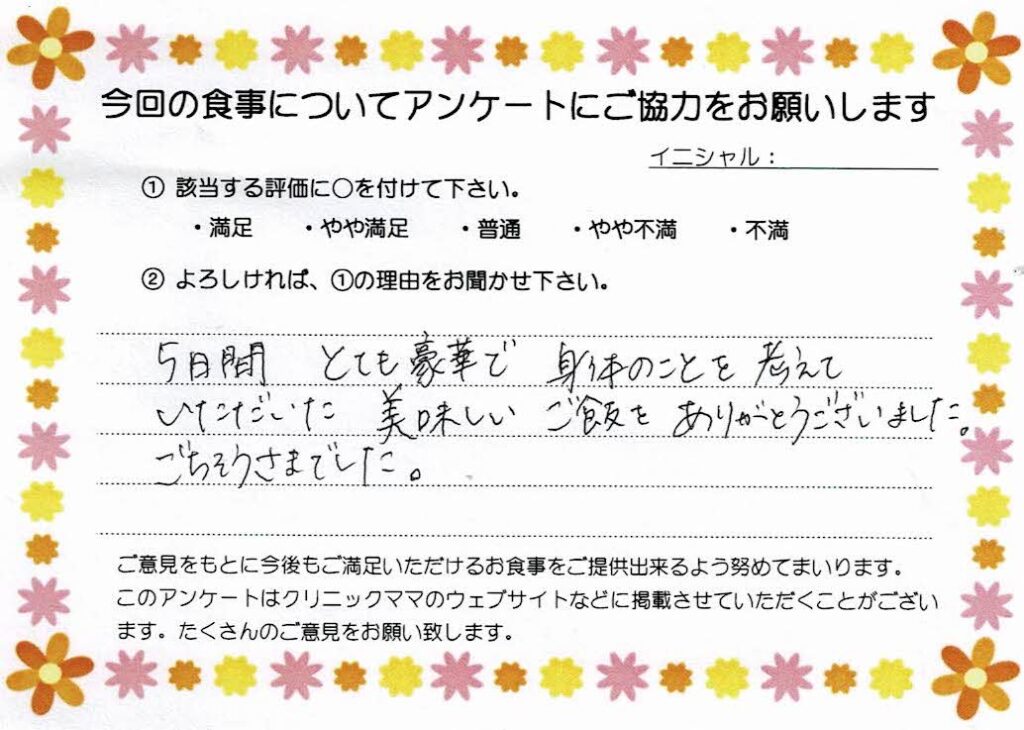 今回の食事についてアンケートにご協力をお願いします
イニシャル：
① 該当する評価に〇を付けて下さい。
・満足 ・やや満足 ・普通 ・やや不満 ・不満
② よろしければ、①の理由をお聞かせ下さい。
5日間 とても豪華で 身体のことを 考えて
いただいた 美味しい ご飯を ありがとうございました。
ごちそうさまでした。
ご意見をもとに今後もご満足いただけるお食事をご提供出来るよう努めてまいります。
このアンケートはクリニックママのウェブサイトなどに掲載させていただくことがござい
ます。たくさんのご意見をお願い致します。